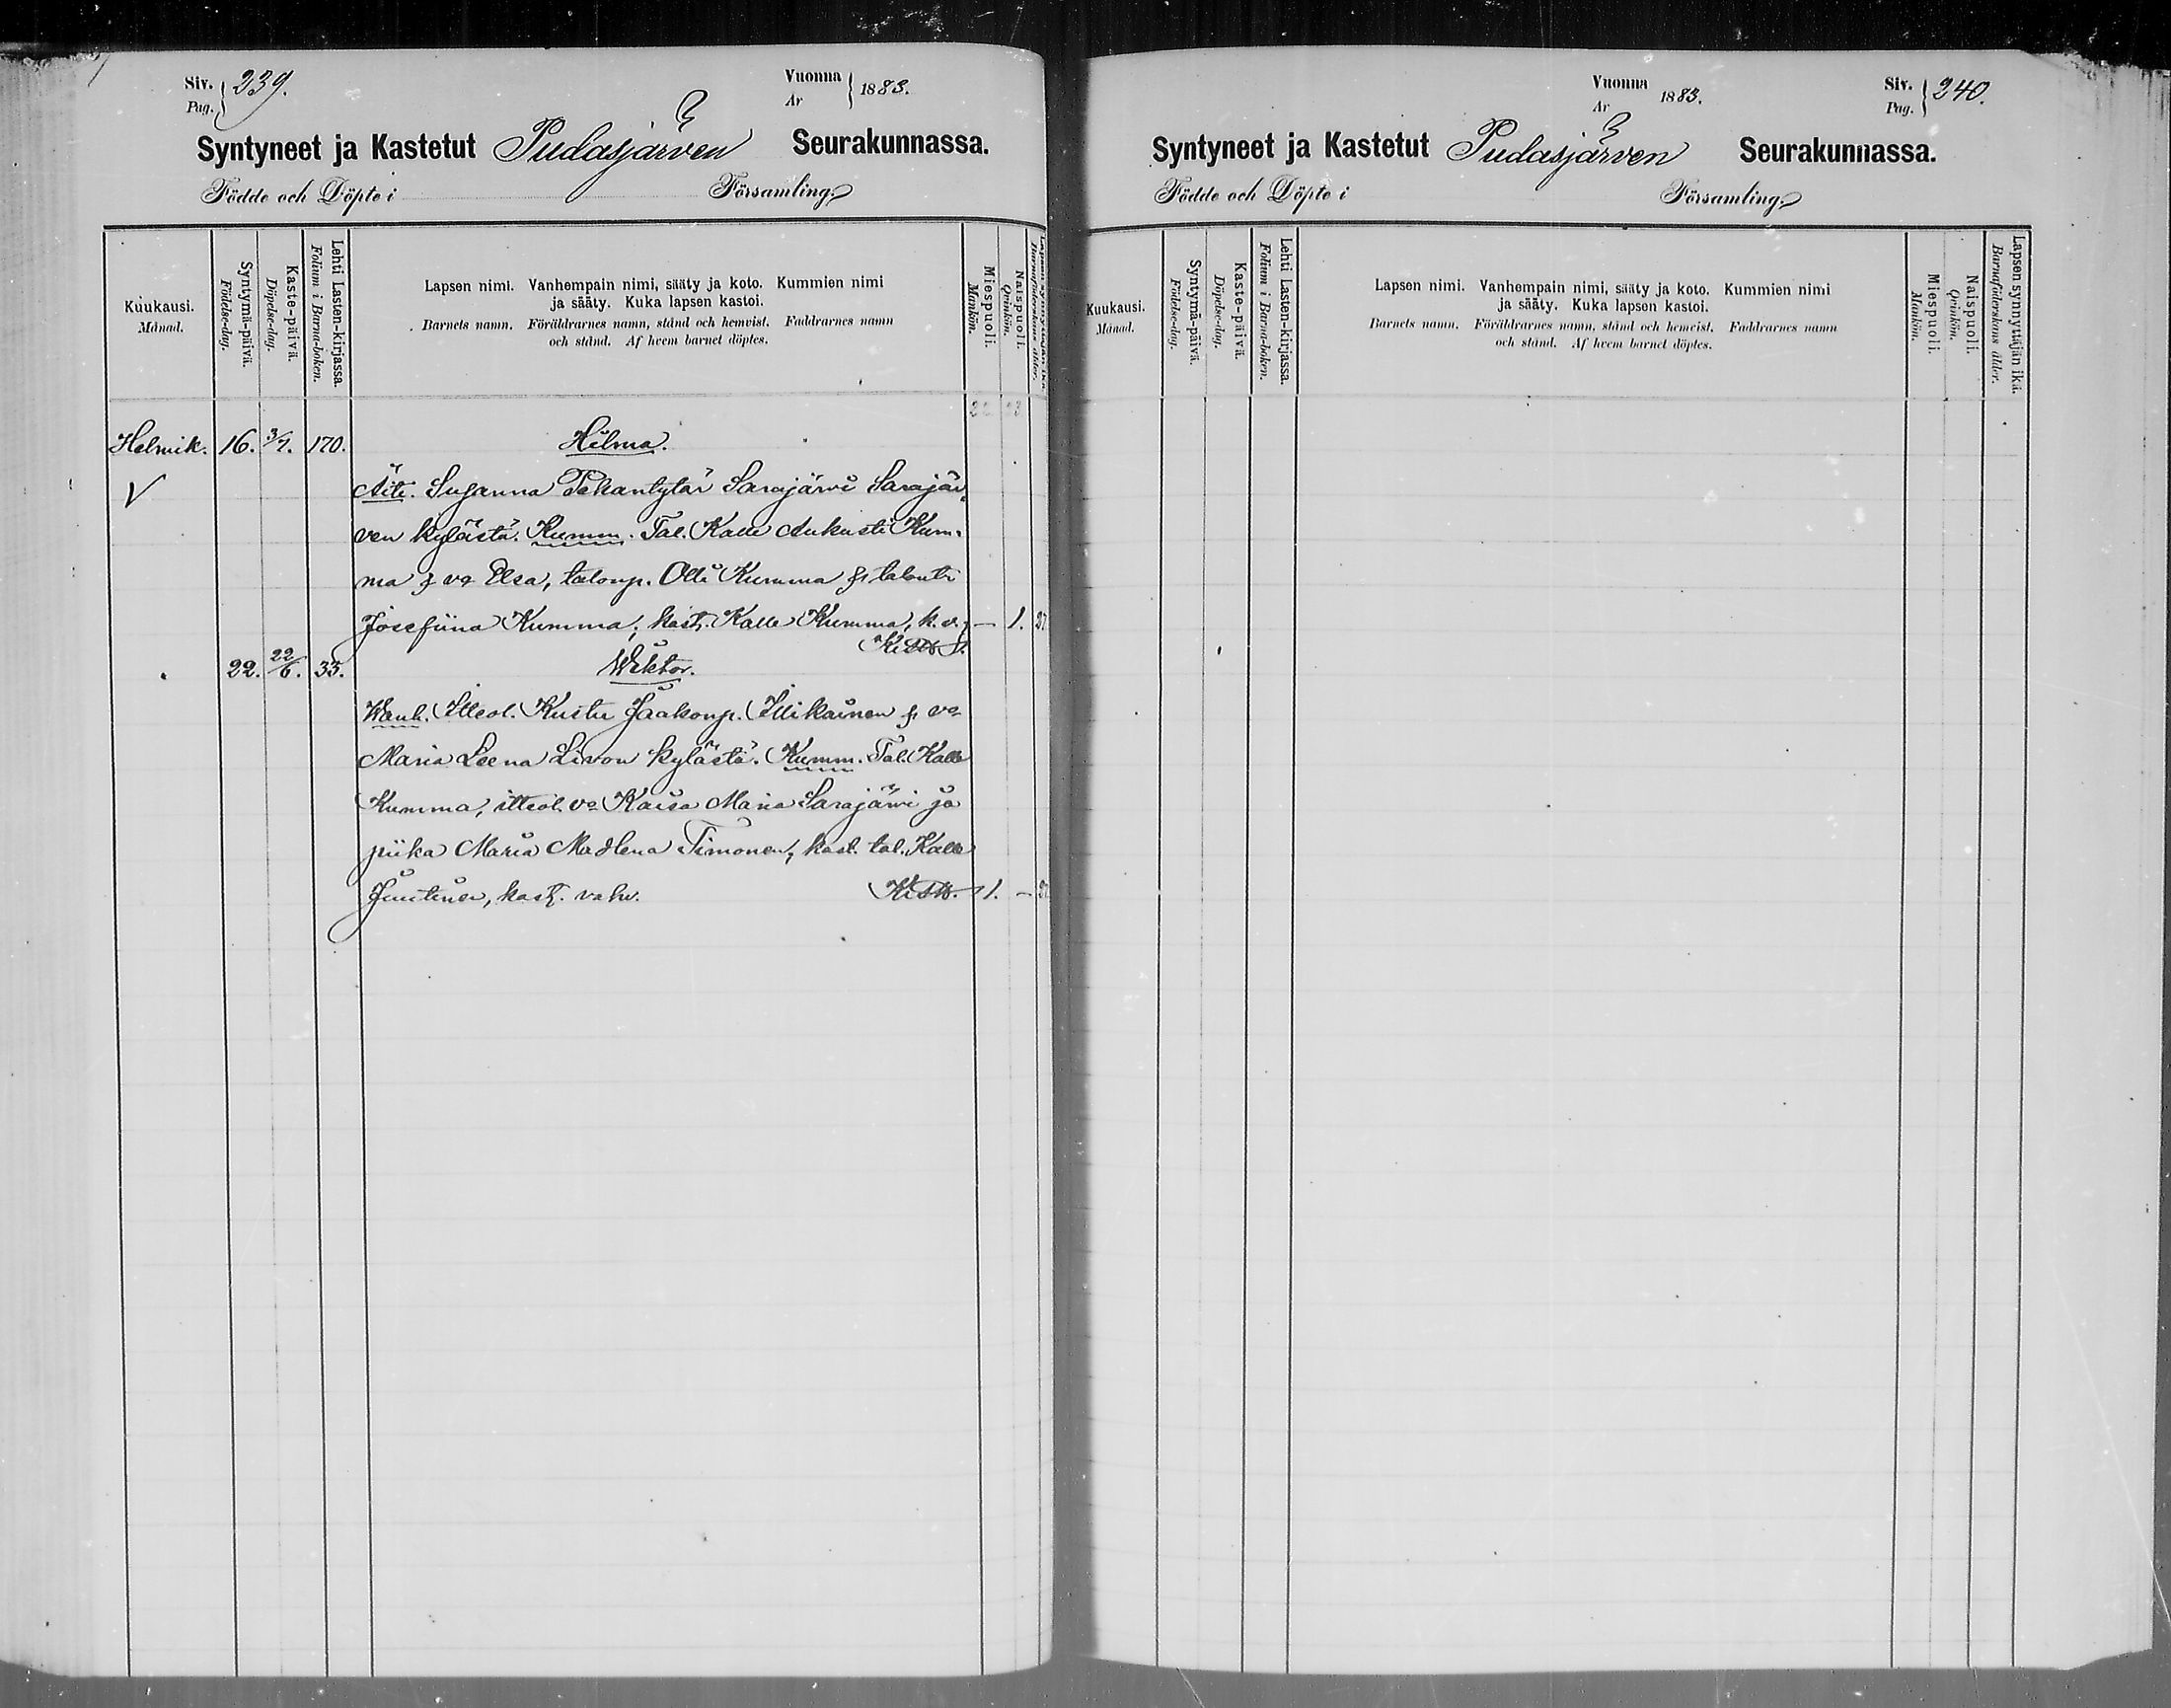 Siv. 239.
Pag.
Vuonna 1883.
År
Syntyneet ja Kastetut Pudasjärven Seurakunnassa.
Födde och Döpte i Församling.
Kuukausi.
Månad.
Syntymä-päivä.
Födelse-dag.
Kaste-päivä.
Döpelse-dag.
Lehti Lasten-kirjassa.
Folium i Barna-boken.
Lapsen nimi. Vanhempain nimi, sääty ja koto. Kummien nimi
ja sääty. Kuka lapsen kastoi.
Barnets namn. Föräldrarnes namn, stånd och hemvist. Faddrarnes namn
och stånd. Af hvem barnet döptes.
Miespuoli.
Mankön.
Naispuoli.
Qvinkön.
Lapsen synnyttäjän ikä.
Barnaföderskans ålder.
22 23
Helmik. 16. 3/7. 170. Hilma.
V Äiti. Susanna Sarajärvi Sarajär-
ven kylästä. Kumm. Tal. Kalle Aukusti Kum-
ma & vo Elsa, talonp. Olli Kumma &
Josefiina Kumma, kast. Kalle Kumma, k. v. — 1.
22. 22/6. 33. Wiktor.
Wanh. Itteol. Kustu Jaakonp. Illikainen & vo
Maria Leena Livon kylästä. Kumm. Tal. Kalle
Kumma, itteol. vo Kaisa Maria Sarajärvi ja
piika Maria Madlena Timonen, kast. tal. Kalle
Juutinen, kast. vahv. 1. —
Vuonna 1883.
År
Siv. 240.
Pag.
Syntyneet ja Kastetut Pudasjärven Seurakunnassa.
Födde och Döpte i Församling.
Kuukausi.
Månad.
Syntymä-päivä.
Födelse-dag.
Kaste-päivä.
Döpelse-dag.
Lehti Lasten-kirjassa.
Folium i Barna-boken.
Lapsen nimi. Vanhempain nimi, sääty ja koto. Kummien nimi
ja sääty. Kuka lapsen kastoi.
Barnets namn. Föräldrarnes namn, stånd och hemvist. Faddrarnes namn
och stånd. Af hvem barnet döptes.
Miespuoli.
Mankön.
Naispuoli.
Qvinkön.
Lapsen synnyttäjän ikä.
Barnaföderskans ålder.